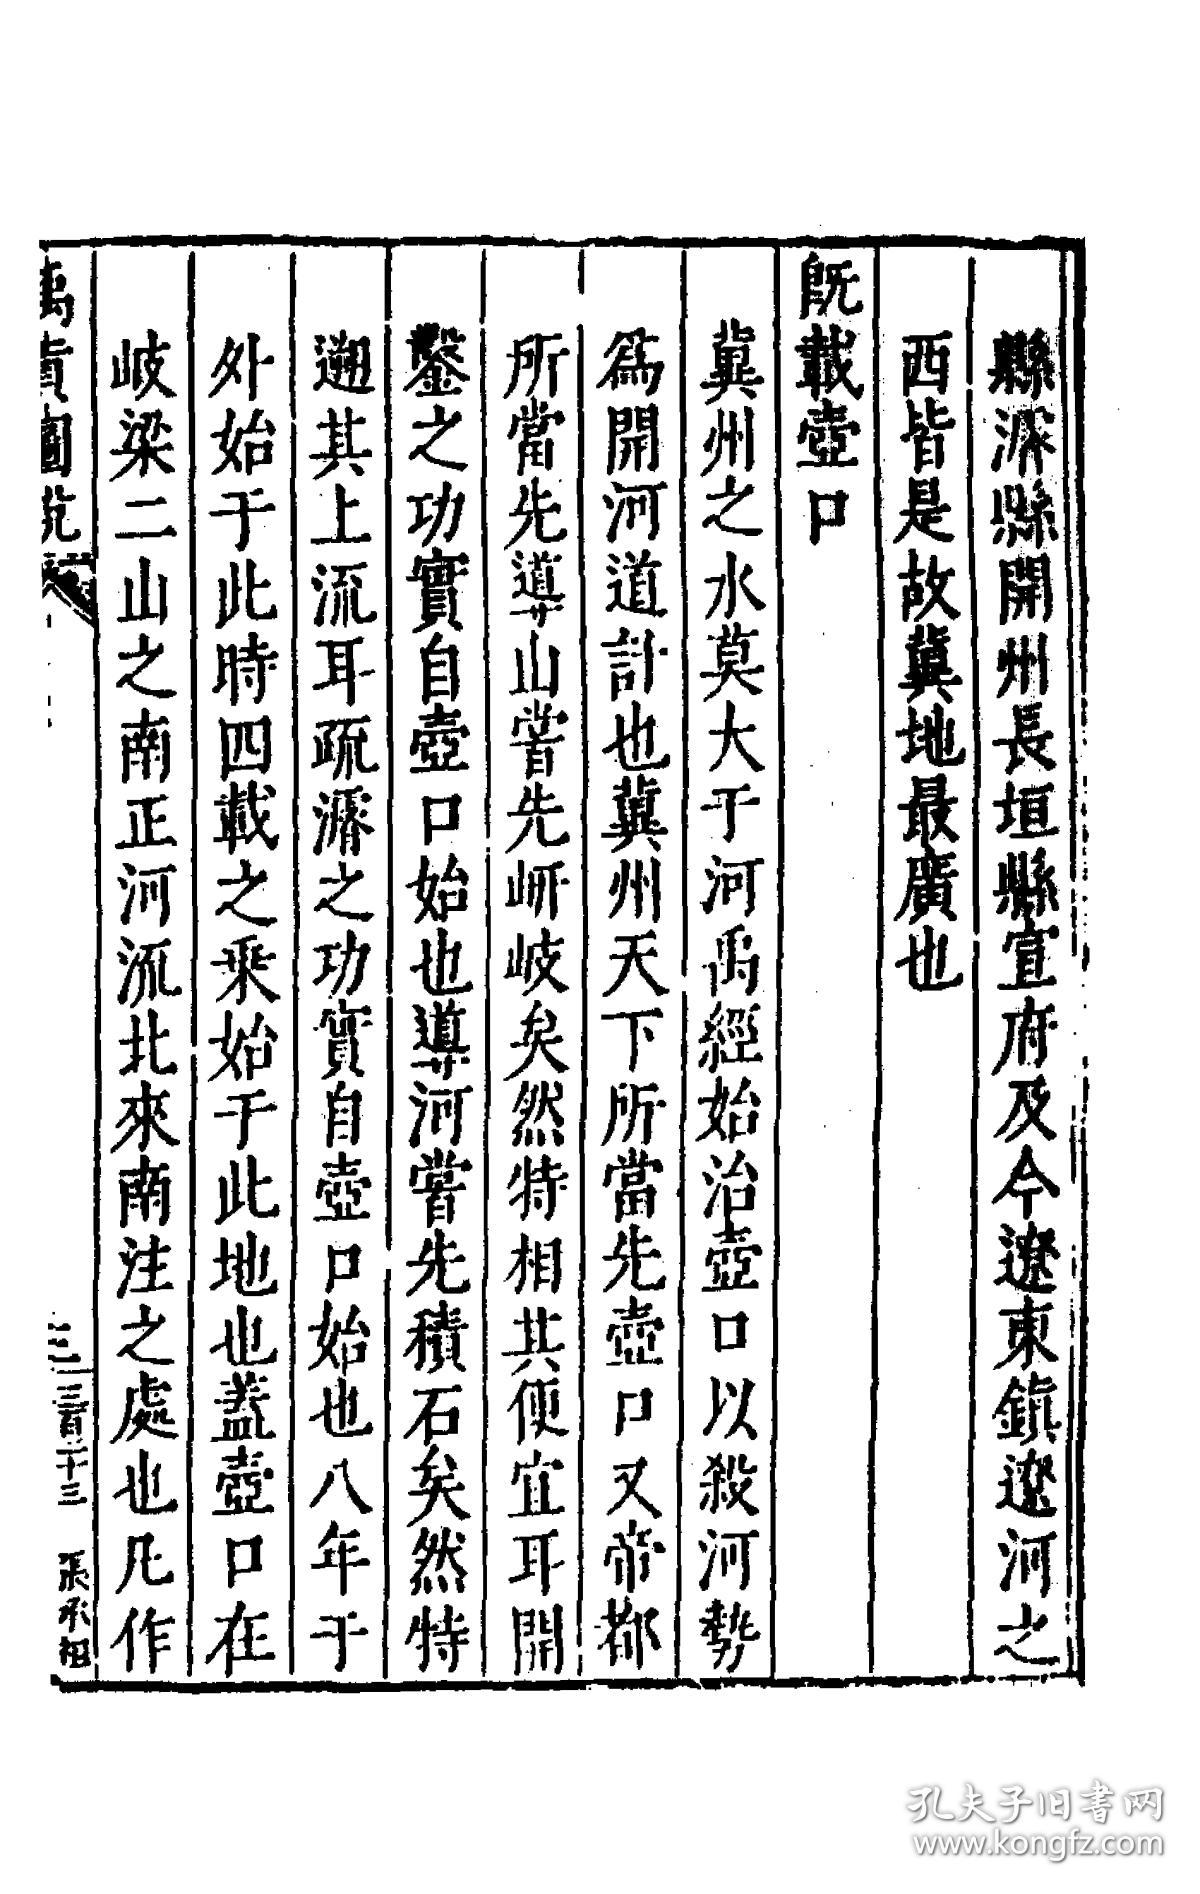 縣滁縣開州長垣縣宣府及今遼東鎮遼河之
西皆是故冀地最廣也
既載壺口
冀州之水莫大于河禹經始治壺口以殺河勢
爲開河道計也冀州天下所當先壺口又帝都
所當先導山嘗先岍岐矣然特相其便宜耳開
鑿之功實自壺口始也導河嘗先積石矣然特
遡其上流耳疏濬之功實自壺口始也八年于
外始于此時四載之乘始于此地也蓋壺口在
岐梁二山之南正河流北來南注之處也凡作
禹貢圖說
三百三十三 張承祖
孔夫子旧書网
www.kongfz.com